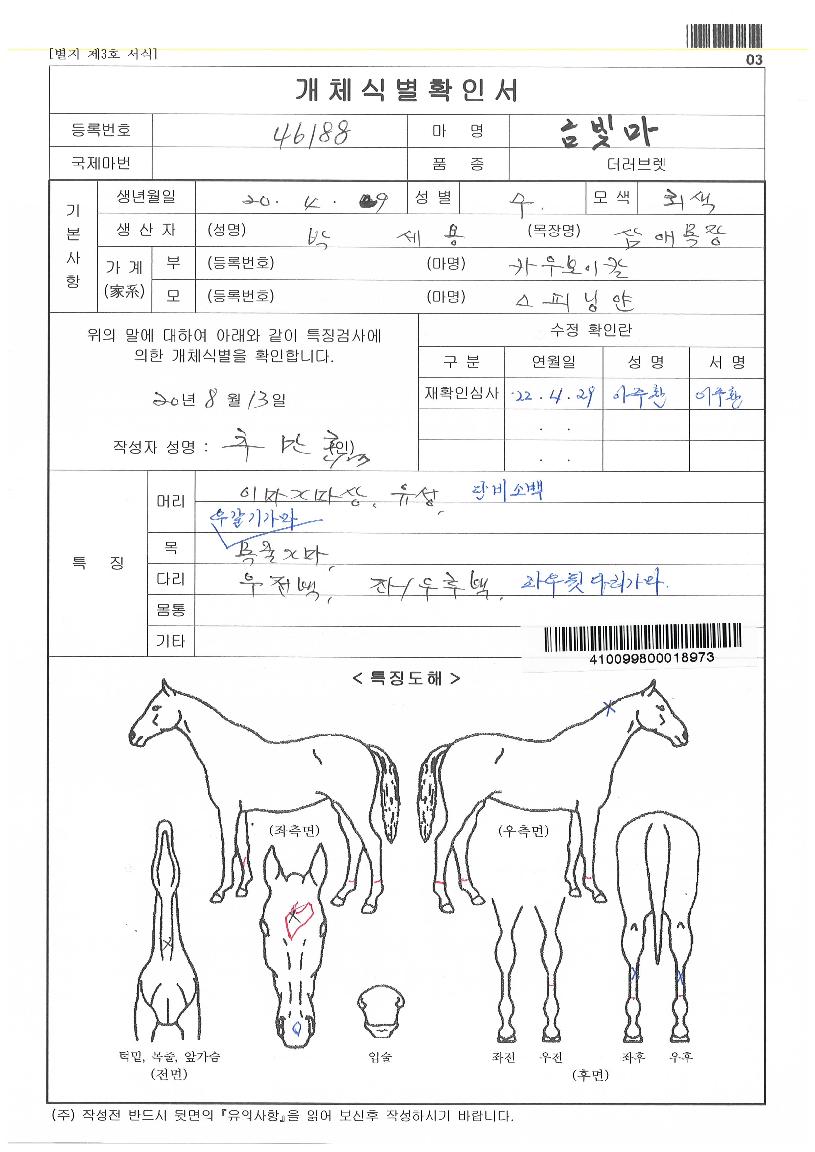 [별지 제3호 서식]
03
개체식별확인서
등록번호 46188 마 명 금빛마
국제마번 품 종 더러브렛
기본사항
생년월일 20. 4. 29 성 별 우. 모 색 회색
생 산 자 (성명) 박 세 용 (목장명)
가 계 (家系) 부 (등록번호) (마명) 카우보이칼
모 (등록번호) (마명) 스피닝얀
위의 말에 대하여 아래와 같이 특징검사에
의한 개체식별을 확인합니다.
20년 8 월 13일
작성자 성명 : 추 만 (인)
수정 확인란
구 분 연월일 성 명 서 명
재확인심사 '22. 4. 29 이주환 이주환
. .
. .
특 징
머리 이마가마상, 유성, 단비소백
우갈기가마
목 목줄가마,
다리 우전백, 좌/우후백, 좌우뒷다리가마.
몸통
기타
410099800018973
< 특징도해 >
(좌측면) (우측면)
턱밑, 목줄, 앞가슴 입술 좌전 우전 좌후 우후
(전면) (후면)
(주) 작성전 반드시 뒷면의 『유의사항』을 읽어 보신후 작성하시기 바랍니다.